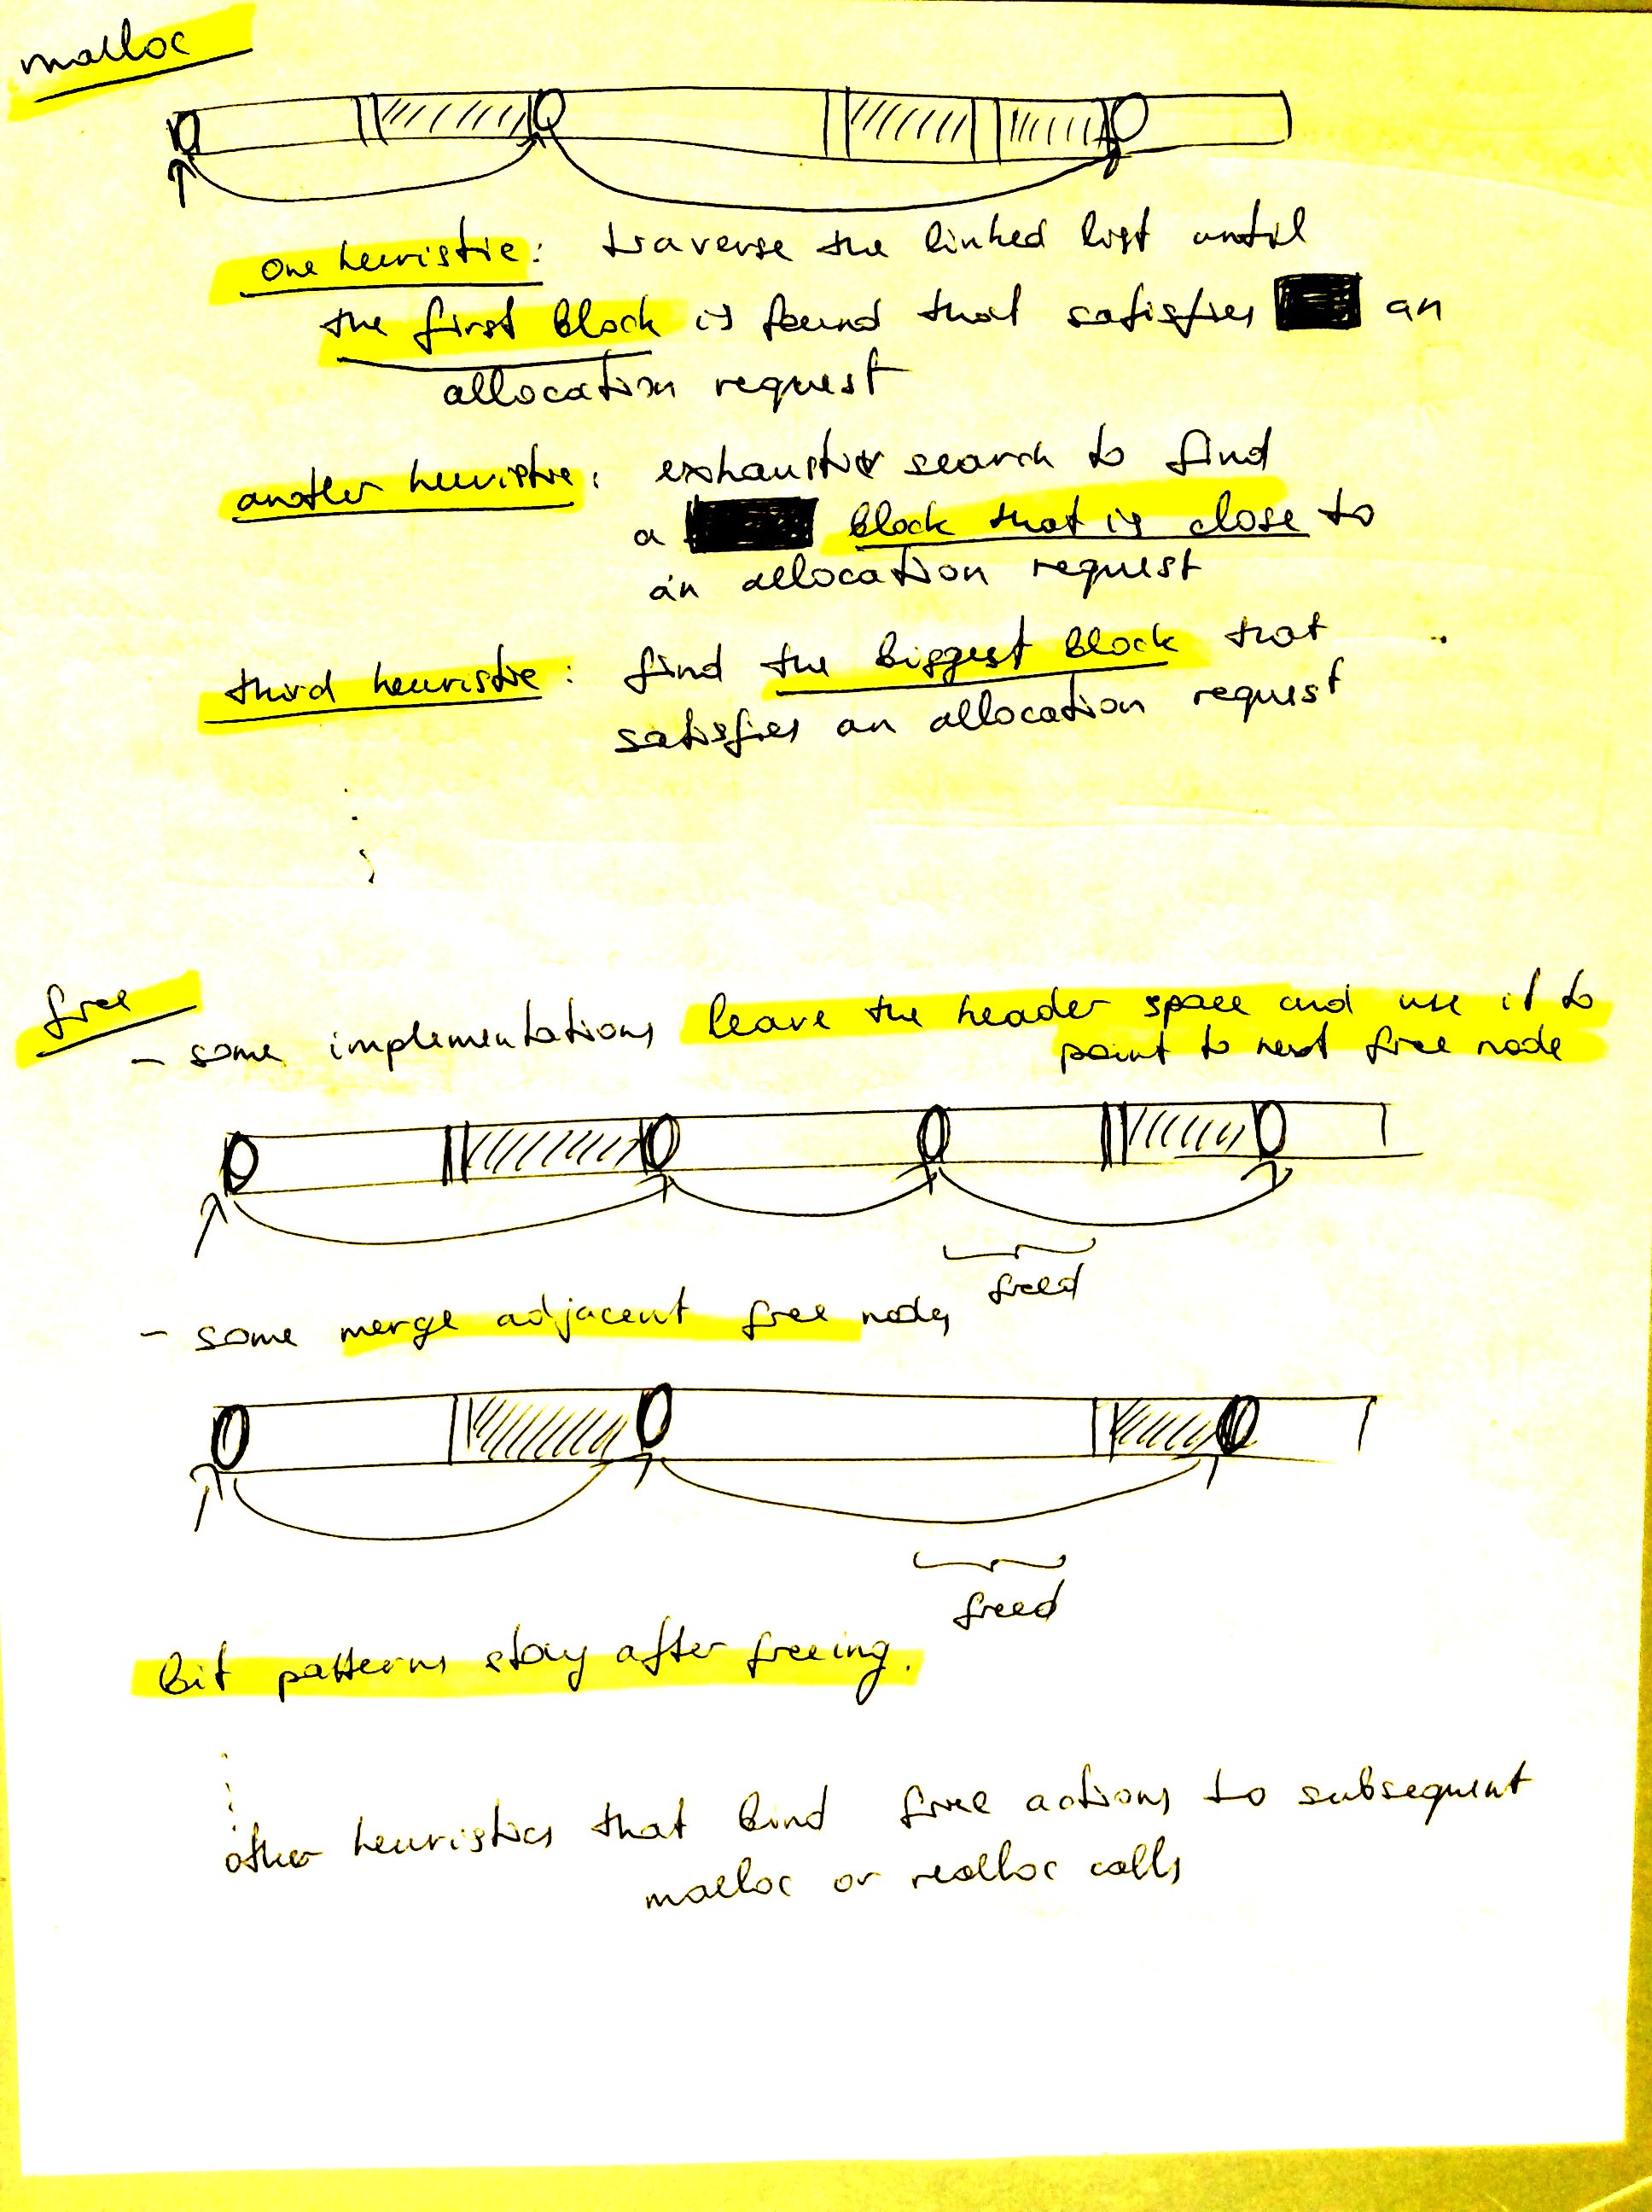 malloc
one heuristic: traverse the linked list until
the first block is found that satisfies an
allocation request
another heuristic: exhaustive search to find
a block that is close to
an allocation request
third heuristic: find the biggest block that
satisfies an allocation request
free
- some implementations leave the header space and use it to
point to next free node
freed
- some merge adjacent free nodes
freed
Bit patterns stay after freeing.
other heuristics that bind free actions to subsequent
malloc or realloc calls